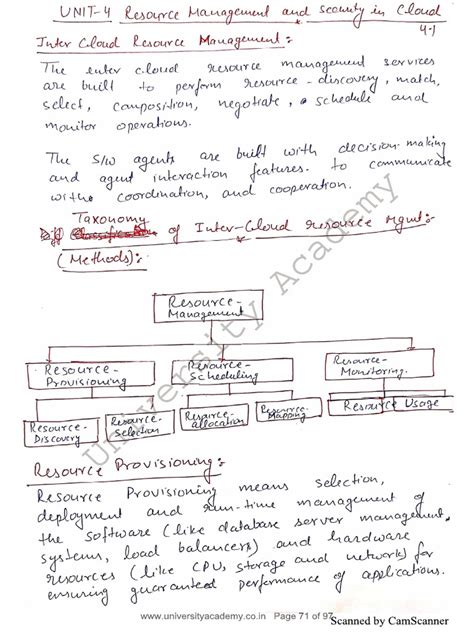 UNIT-4 Resource Management and Security in Cloud
4.1
Inter Cloud Resource Management:-
The enter cloud resource management services
are built to perform resource-discovery, match,
select, composition, negotiate, schedule and
monitor operations.
The S/W agents are built with decision-making
and agent interaction features. to communicate
with coordination, and cooperation.
Taxonomy
of Inter-Cloud resource Mgmt:-
(Methods):-
Resource-
Management
Resource-
Provisioning
Resource-
Scheduling
Resource-
Monitoring.
Resource-
Discovery
Resource-
Selection
Resource-
allocation
Resource-
Mapping
Resource Usage
Resource Provisioning:-
Resource Provisioning means selection,
deployment and run-time management of
the software (like database server management,
systems, load balancers) and hardware
resources (like CPU, storage and network) for
ensuring guaranteed performance of applications.
University Academy
www.universityacademy.co.in Page 71 of 97
Scanned by CamScanner